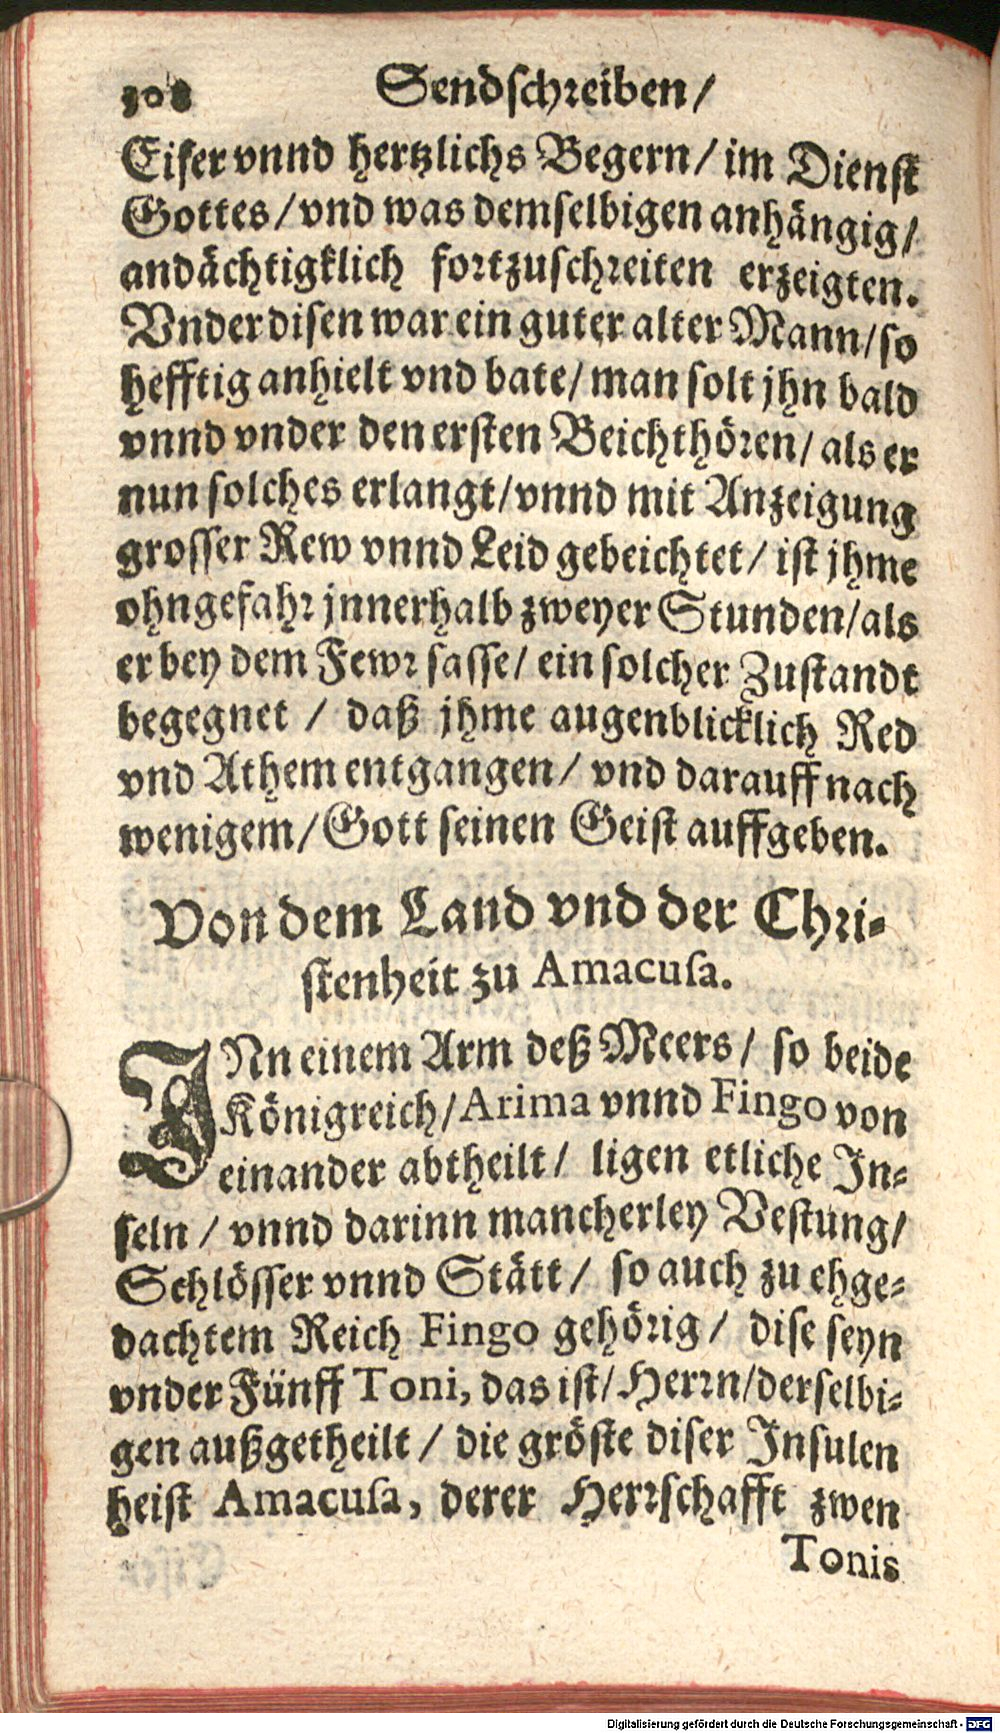 308 Sendschreiben/
Eifer vnnd hertzlichs Begern/ im Dienst
Gottes/ vnd was demselbigen anhängig/
andächtigklich fortzuschreiten erzeigten.
Vnder disen war ein guter alter Mann/ so
hefftig anhielt vnd bate/ man solt jhn bald
vnnd vnder den ersten Beichthören/ als er
nun solches erlangt/ vnnd mit Anzeigung
grosser Rew vnnd Leid gebeichtet/ ist jhme
ohngefahr jnnerhalb zweyer Stunden/ als
er bey dem Fewr sasse/ ein solcher Zustandt
begegnet / daß jhme augenblicklich Red
vnd Athem entgangen/ vnd darauff nach
wenigem/ Gott seinen Geist auffgeben.
Von dem Land vnd der Chri-
stenheit zu Amacusa.
INn einem Arm deß Meers/ so beide
Königreich/ Arima vnnd Fingo von
einander abtheilt/ ligen etliche In-
seln / vnnd darinn mancherley Vestung/
Schlösser vnnd Stätt/ so auch zu ehge-
dachtem Reich Fingo gehörig/ dise seyn
vnder Fünff Toni, das ist/ Herrn/ derselbi-
gen außgetheilt / die gröste diser Insulen
heist Amacusa, derer Herrschafft zwen
Tonis
Digitalisierung gefördert durch die Deutsche Forschungsgemeinschaft - DFG